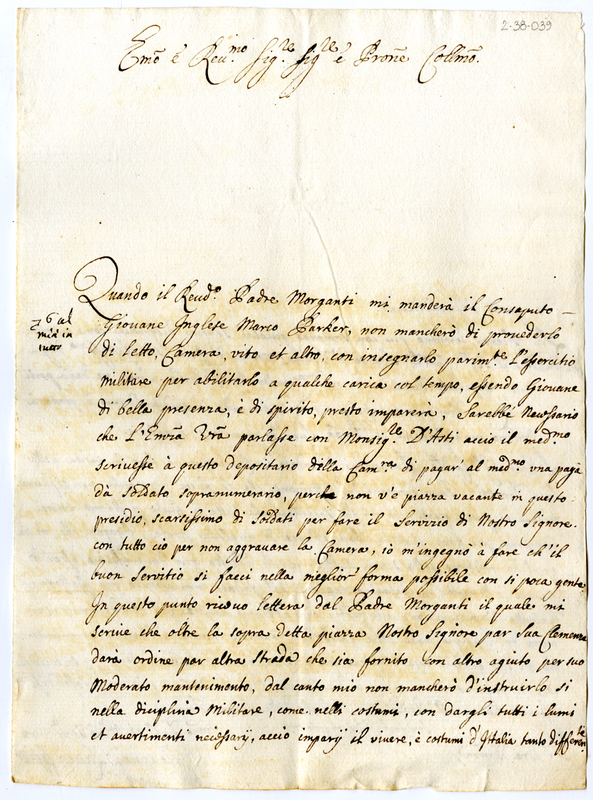 2-38-039
Emo è Reu.mo Sig.re Sig.re è Prone Colmo.
Quando il Reud.o Padre Morganti mi manderà il Consaputo
Giouane Inglese Marco Parker, non mancherò di prouederlo
26 al
mese in
tutto
di letto, Camera, vito et altro, con insegnarlo parim.te l'essercitio
militare per abilitarlo a qualche carica col tempo, essendo Giouane
di bella presenza, è di spirito, presto imparerà, Sarebbe Necessario
che l'Emza Vra parlasse con Monsig.re D'Asti acciò il med.mo
scriuesse à questo depositario della Cam.ra di pagar' al med.mo vna paga
dà soldato sopranumerario, perche non v'è piazza vacante in questo
presidio, scarsissimo di soldati per fare il seruizio di Nostro Signore.
con tutto ciò per non aggrauare la Camera, io m'ingegnò à fare ch'il
buon seruitio si facci nella meglior' forma possibile con si poca gente
In questo punto riceuo lettera dal Padre Morganti il quale mi
scriue che oltre la sopra detta piazza Nostro Signore par sua Clemenza
darà ordine par altra strada che sia fornito con altro agiuto per suo
Moderato mantenimento, dal canto mio non mancherò d'instruirlo si
nella diciplina Militare, come nelli costumi, con dargli tutti i lumi
et auertimenti necessarij, acciò imparij il viuere, è costumi d'Italia tanto differen.te